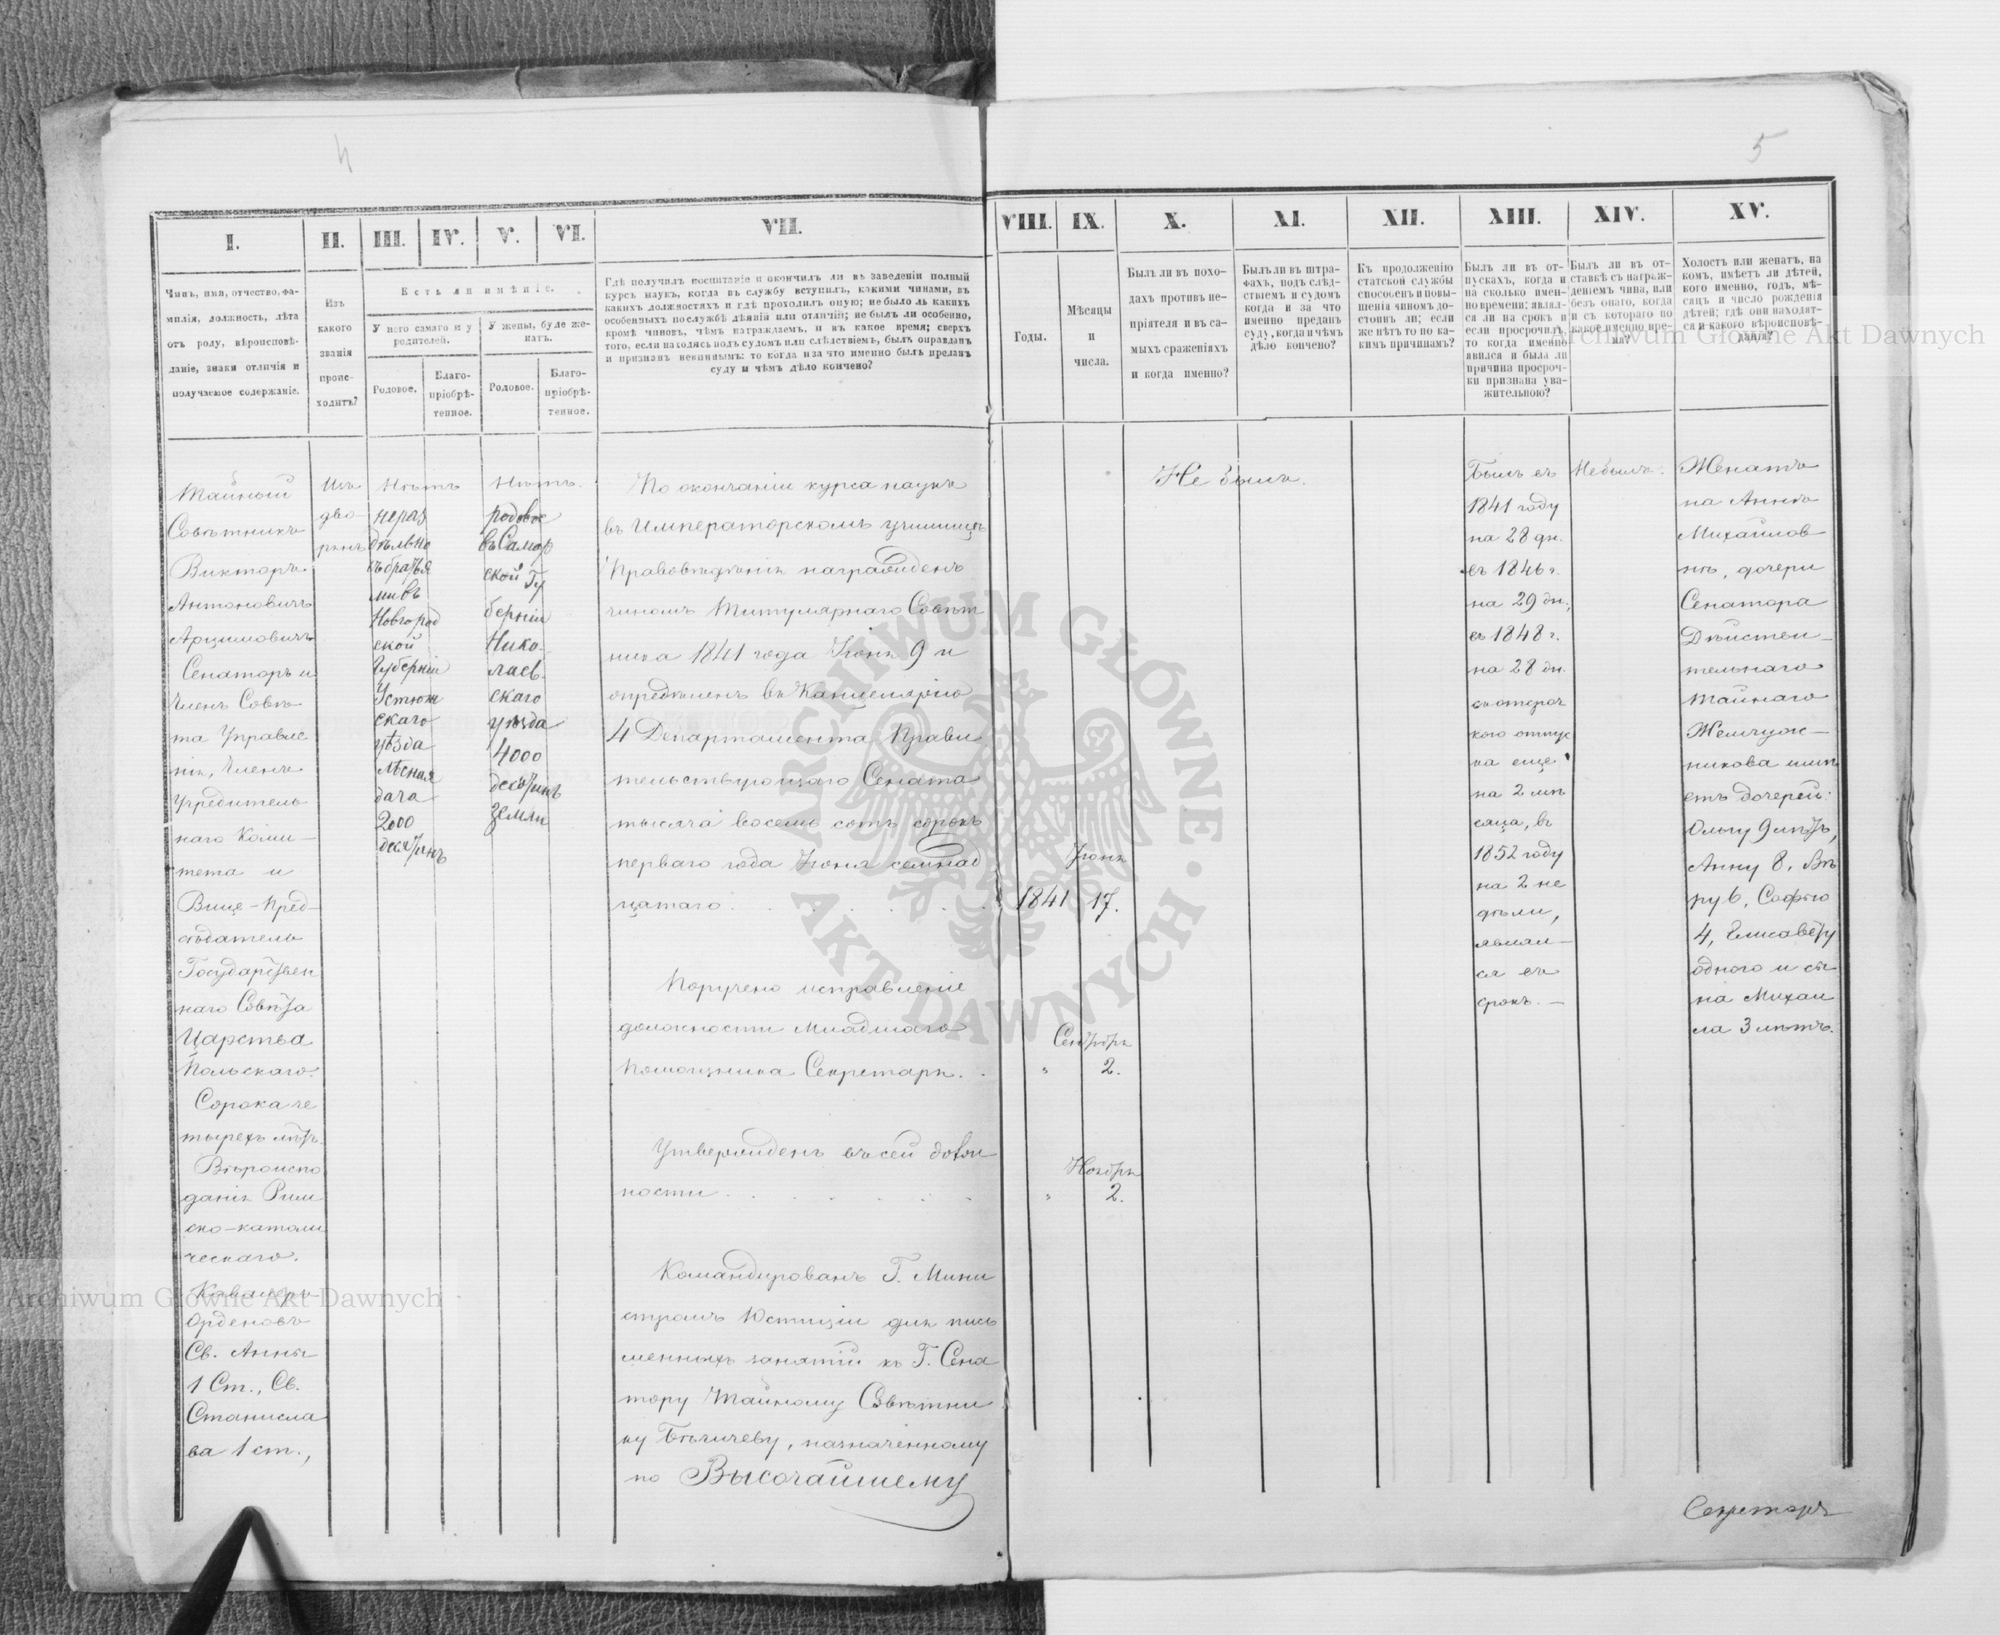 4
5
I.
II.
III.
IV.
V.
VI.
VII.
VIII.
IX.
X.
XI.
XII.
XIII.
XIV.
XV.
Чинъ, имя, отчество, фа-
милія, должность, лѣта
отъ роду, вѣроисповѣ-
даніе, знаки отличія и
получаемое содержаніе.
Изъ
какого
званія
проис-
ходитъ?
Есть ли имѣніе.
У него самаго и у
родителей.
У жены, буде же-
натъ.
Родовое.
Благо-
пріобрѣ-
тенное.
Родовое.
Благо-
пріобрѣ-
тенное.
Гдѣ получилъ воспитаніе и окончилъ ли въ заведеніи полный
курсъ наукъ, когда въ службу вступилъ, какими чинами, въ
какихъ должностяхъ и гдѣ проходилъ оную; не было ль какихъ
особенныхъ по службѣ дѣяній или отличій; не былъ ли особенно,
кромѣ чиновъ, чѣмъ награждаемъ, и въ какое время; сверхъ
того, если находясь подъ судомъ или слѣдствіемъ, былъ оправданъ
и признанъ невиннымъ: то когда и за что именно былъ преданъ
суду и чѣмъ дѣло кончено?
Годы.
Мѣсяцы
и
числа.
Былъ ли въ похо-
дахъ противъ не-
пріятеля и въ са-
мыхъ сраженіяхъ
и когда именно?
Былъ ли въ штра-
фахъ, подъ слѣд-
ствіемъ и судомъ
когда и за что
именно преданъ
суду, когда и чѣмъ
дѣло кончено?
Къ продолженію
статской службы
способенъ и повы-
шенія чиномъ до-
стоинъ ли; если
же нѣтъ то по ка-
кимъ причинамъ?
Былъ ли въ от-
пускахъ, когда и
на сколько имен-
но времени: являл-
ся ли на срокъ и
если просрочилъ,
то когда именно
явился и была ли
причина просроч-
ки признана ува-
жительною?
Былъ ли въ от-
ставкѣ съ награж-
деніемъ чина, или
безъ онаго, когда
и съ котораго по
какое именно вре-
мя?
Холостъ или женатъ, на
комъ, имѣетъ ли дѣтей,
кого именно, годъ, мѣ-
сяцъ и число рожденія
дѣтей; гдѣ они находят-
ся и какого вѣроисповѣ-
данія?
Тайный
Совѣтникъ
Викторъ
Антоновичъ
Арцимовичъ
Сенаторъ и
Членъ Совѣ
та Управле
нія, Членъ
Учредитель
наго Коми-
тета и
Вице-Пред-
сѣдатель
Государствен
наго Совѣта
Царства
Польскаго.
Сорока че
тырехъ лѣтъ.
Вѣроиспо
данія Рим
ско-католи
ческаго.
Кавалеръ
Орденовъ
Св. Анны
1 Ст., Св.
Станисла
ва 1 ст.,
Изъ
дво-
рянъ
Нѣтъ
нераз
дѣльно
съ братья
ми въ
Новгород
ской
Губерніи
Устюж
скаго
уѣзда
лѣсная
дача
2000
десятинъ
Нѣтъ.
родовое
въ Самар
ской Гу
берніи
Нико-
лаев-
скаго
уѣзда
4000
десятинъ
земли
По окончаніи курса наукъ
въ Императорскомъ училищѣ
Правовѣдѣнія награжденъ
чиномъ Титулярнаго Совѣт
ника 1841 года Іюня 9 и
опредѣленъ въ Канцелярію
4 Департамента Прави
тельствующаго Сената
тысяча восемь сотъ сорокъ
перваго года Іюня семнад
цатаго
Іюня
1841 17.
Поручено исправленіе
должности Младшаго
Помощника Секретаря.
Сентября
" 2.
Утвержденъ въ сей долж
ности
Ноября
" 2.
Командированъ Г. Мини
стромъ Юстиціи для пись
менныхъ занятій къ Г. Сена
тору Тайному Совѣтни
ку Бѣгичеву, назначенному
по Высочайшему
Не былъ.
Былъ въ
1841 году
на 28 дн.
въ 1846 г.
на 29 дн.,
въ 1848 г.
на 28 дн.
съ отсроч
кою отпус
ка еще
на 2 мѣ
сяца, въ
1852 году
на 2 не
дѣли,
являл-
ся въ
срокъ.-
Не былъ.
Женатъ
на Аннѣ
Михайлов
нѣ, дочери
Сенатора
Дѣйстви-
тельнаго
Тайнаго
Жемчуж-
никова имѣ
етъ дочерей:
Ольгу 9 лѣтъ,
Анну 8, Вѣ
ру 6, Софью
4, Елисавету
одного и сы
на Михаи
ла 3 лѣтъ.
Секретарь
ARCHIWUM GŁÓWNE AKT DAWNYCH
Archiwum Główne Akt Dawnych
Archiwum Główne Akt Dawnych